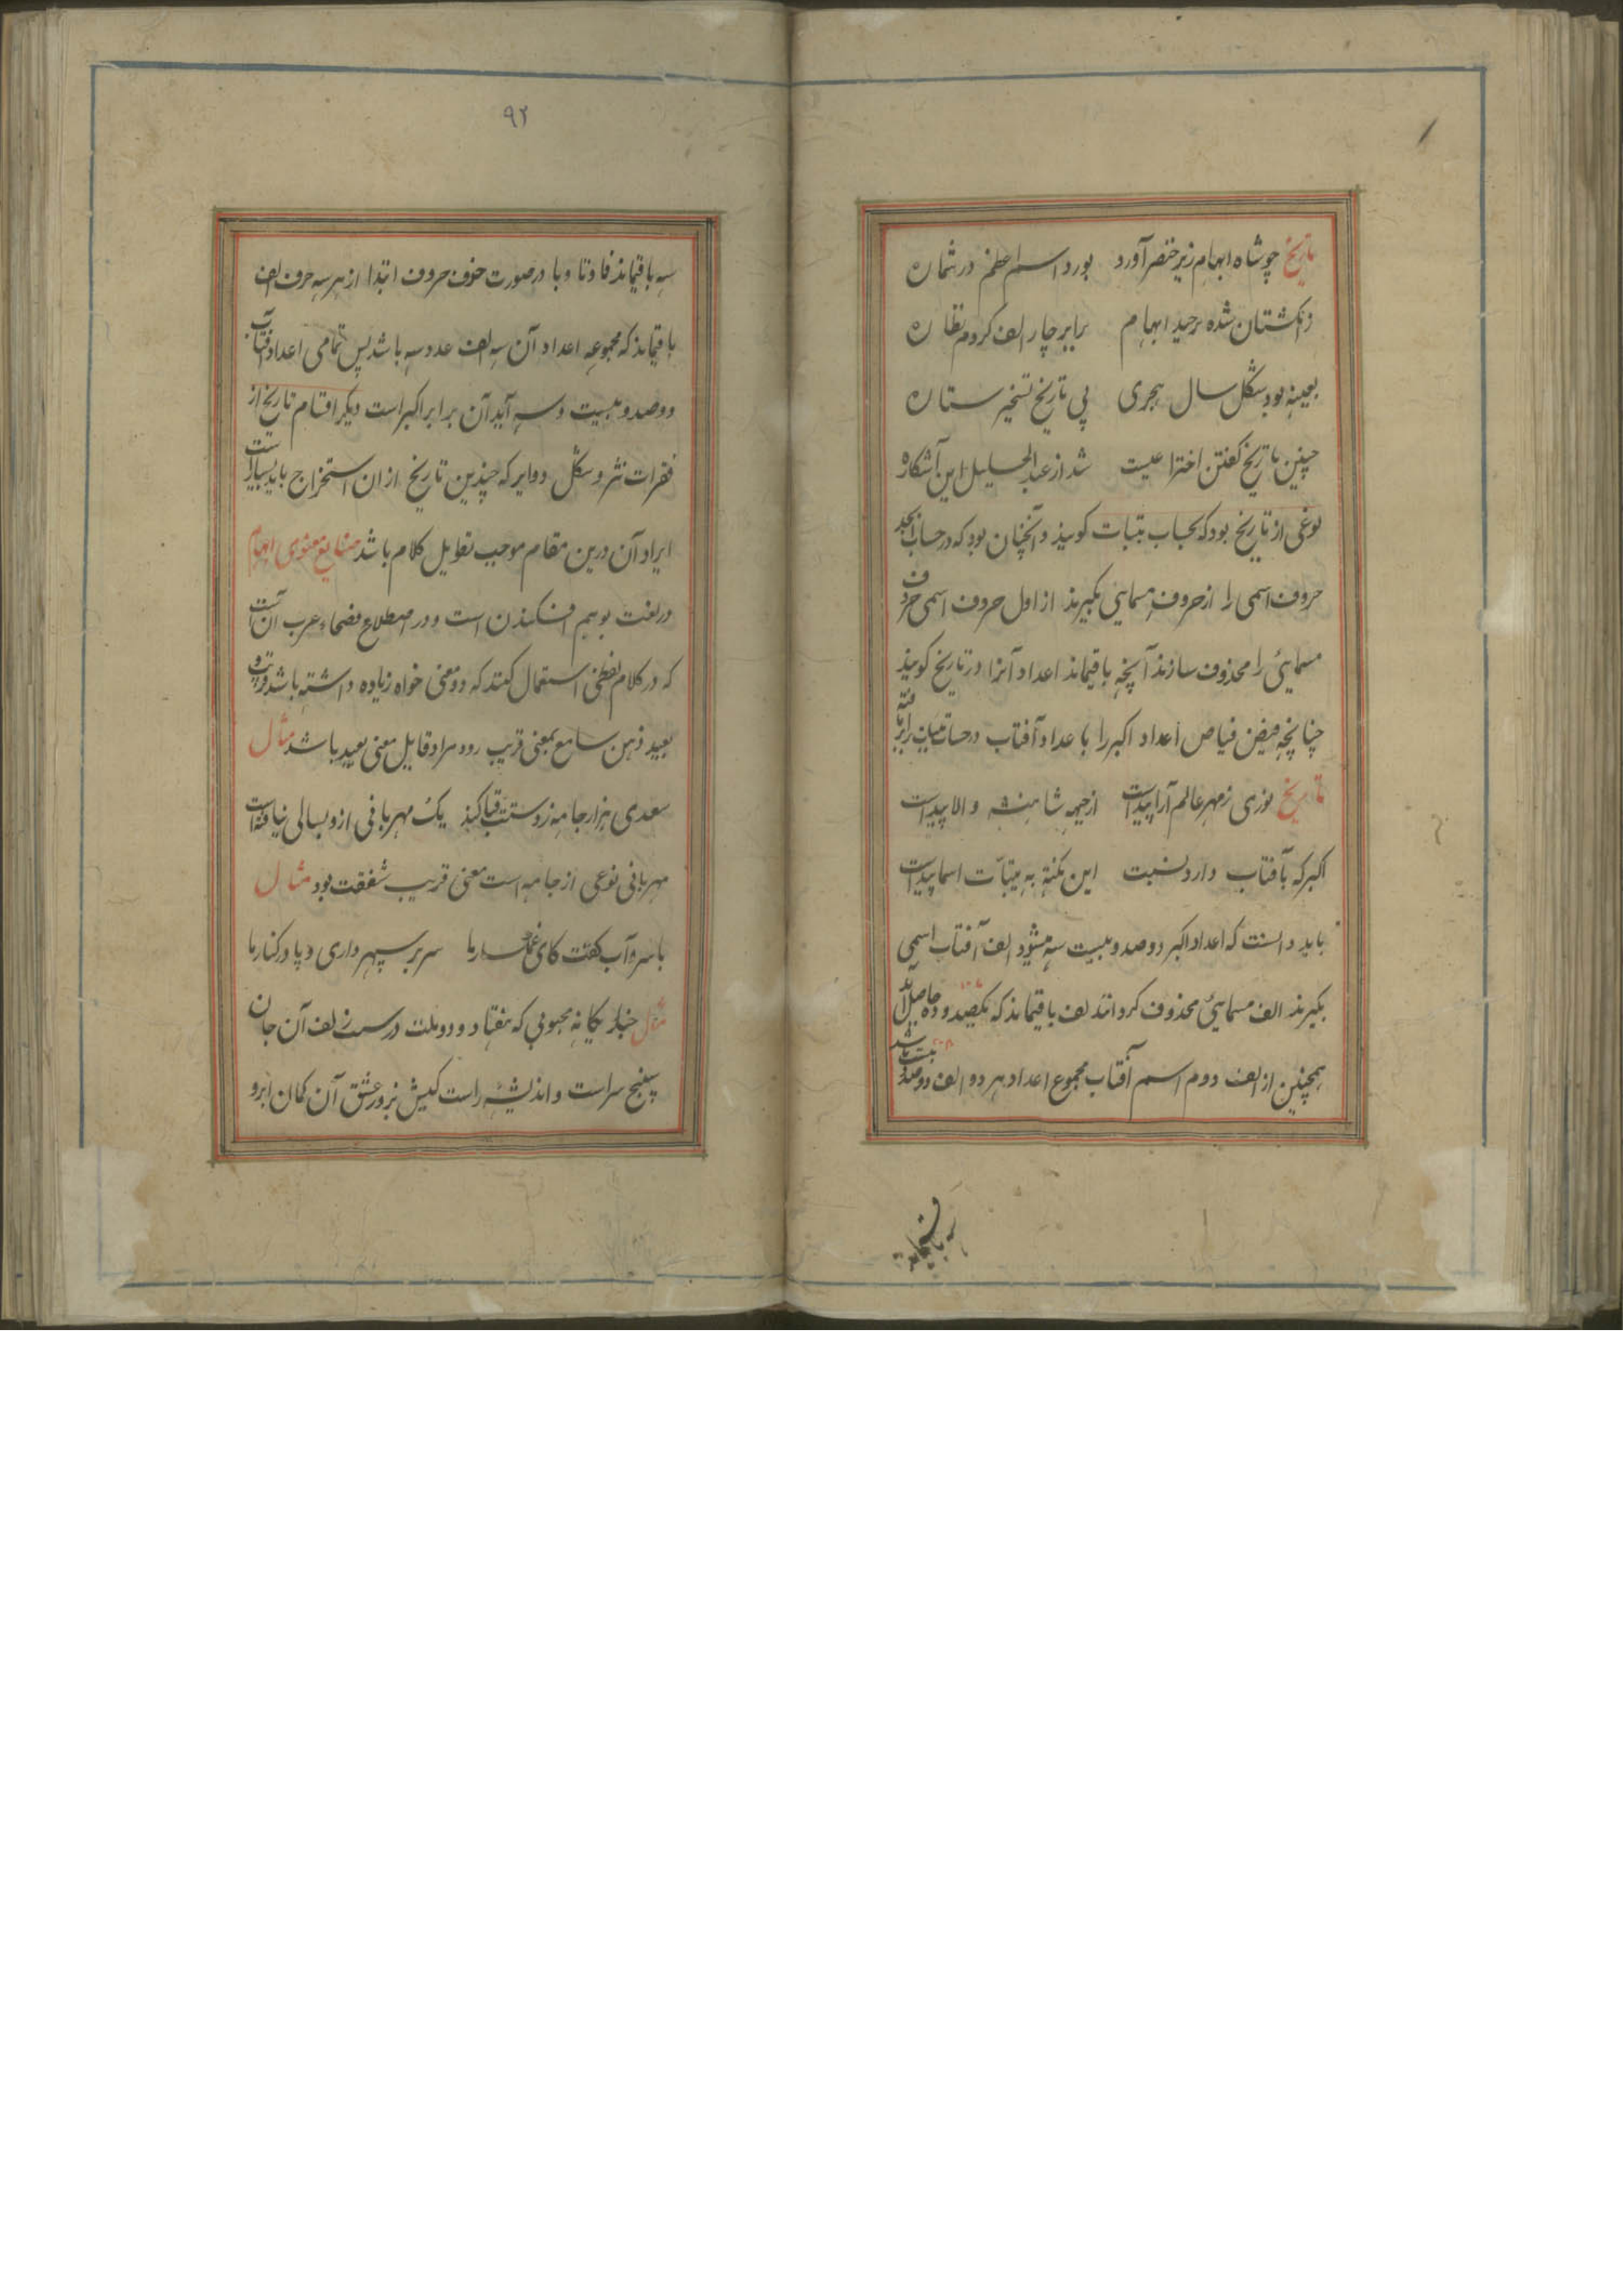 تاریخ چو شاه ابهام زیر خنصر آورد بورد اسم اعظم در شماره
ز انگشتان شده برحید ابهام برابر چار الف کردم نظاره
بعینه بود شکل سال هجری پی تاریخ تسخیر ستاره
چنین تاریخ گفتن اختراعیست شد از عبدالجلیل این آشکاره
نوعی از تاریخ بود که بحساب بینات گویند و آنچنان بود که در حساب ابجد
حروف اسمی را از حروف مسمایی بگیرند از اول حروف اسمی حرف
مسمایئ را محذوف سازند آنچه باقیماند اعداد آنرا در تاریخ گویند
چنانچه فیض فیاض اعداد اکبر را با عداد آفتاب در حساب بینات برابر یافته
تاریخ نوری ز مهر عالم آرا پیداست از جبهه شاهنشه والا پیداست
اکبر که بآفتاب دارد نسبت این نکته به بینات اسما پیداست
باید دانست که اعداد اکبر دوصد و بیست سه میشود الف آفتاب اسمی
بگیرند الف مسمایئ محذوف کردانند لف باقیماند که یکصد و ده حاصل آید
همچنین از الف دوم اسم آفتاب مجموع اعداد هر دو الف دوصد و بیست باشد
سه باقیماند
۹۲
سه باقیماند فا و تا و با در صورت حذف حروف ابتدا از هر سه حرف الف
باقیماند که مجموعه اعداد آن سه الف عدد سه باشد پس تمامی اعداد آفتاب
دوصد و بیست و سه آید آن برابر اکبر است دیگر اقسام تاریخ از
فقرات نثر و شکل دوایر که چندین تاریخ از ان استخراج یابد بسیار است
ایراد آن درین مقام موجب تطویل کلام باشد صنایع معنوی ابهام
در لغت بوهم افکندن است و در اصطلاح فصحاء عرب آن است
که در کلام لفظی استعمال کنند که دو معنی خواه زیاده داشته باشد قریب و
بعید ذهن سامع بمعنی قریب رود مراد قایل معنی بعید باشد مثال
سعدی هزار جامه ز دستت قبا کند یک مهربانی از و بسالی نیافته است
مهربانی نوعی از جامه است معنی قریب شفقت بود مثال
با سرو آب گفت کای غمگسار ما سر بر سپهر داری و پا در کنار ما
مثال یکانه محبوبی که هفتاد و دو ملت در سر زلف آن جان
سپنج سراست و اندیشه راست کیش نرور عشق آن کمان ابرو